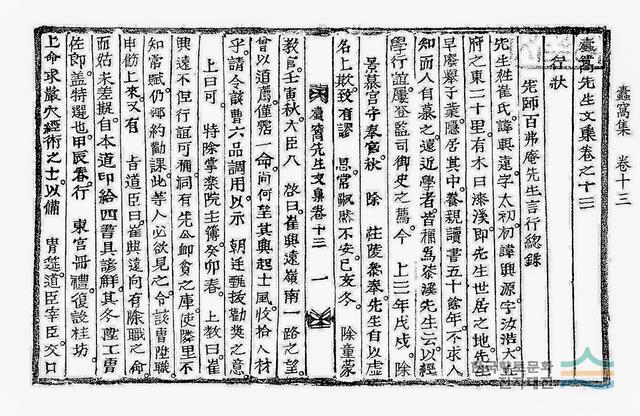 蠹窩集 卷十三
蠹窩先生文集卷之十三
行狀
先師百弗庵先生言行總錄
先生姓崔氏諱興遠字太初初諱興源字汝浩大
府之東二十里有木曰漆溪卽先生世居之地先生
早廢擧子業隱居其中養親讀書五十餘年不求人
知而人自慕之遠近學者皆稱爲漆溪先生云以經
學行誼屢登監司御史之薦今 上二年戊戌 除
景慕宮守奉官秋 除 莊陵參奉先生自以虛
名上欺致有謬 恩常兢惕不安己亥冬 除童蒙
蠹窩先生文集卷十三 一
敎官壬寅秋大臣入 啓曰崔興遠嶺南一路之望
曾以道薦僅霑一命向何至其興起士風收拾人材
乎請令該曹六品調用以示 朝廷甄拔勸奬之意
上曰可 特除掌樂院主簿癸卯春 上敎曰崔
興遠不但行誼可稱洞有先公卹貧之庫使隣里不
知常賦仍鄕約勸課此等人必欲見之令該曹陞職
申飭上來又有 旨道臣曰崔興遠向有除職之命
而姑未差擬自本道印給四書具諺解其冬陞工曹
佐郞盖特選也甲辰春行 東宮冊禮復設桂坊
上命求嚴穴經術之士以備 胄筵道臣宰臣交口
한국향토문화
전자대전